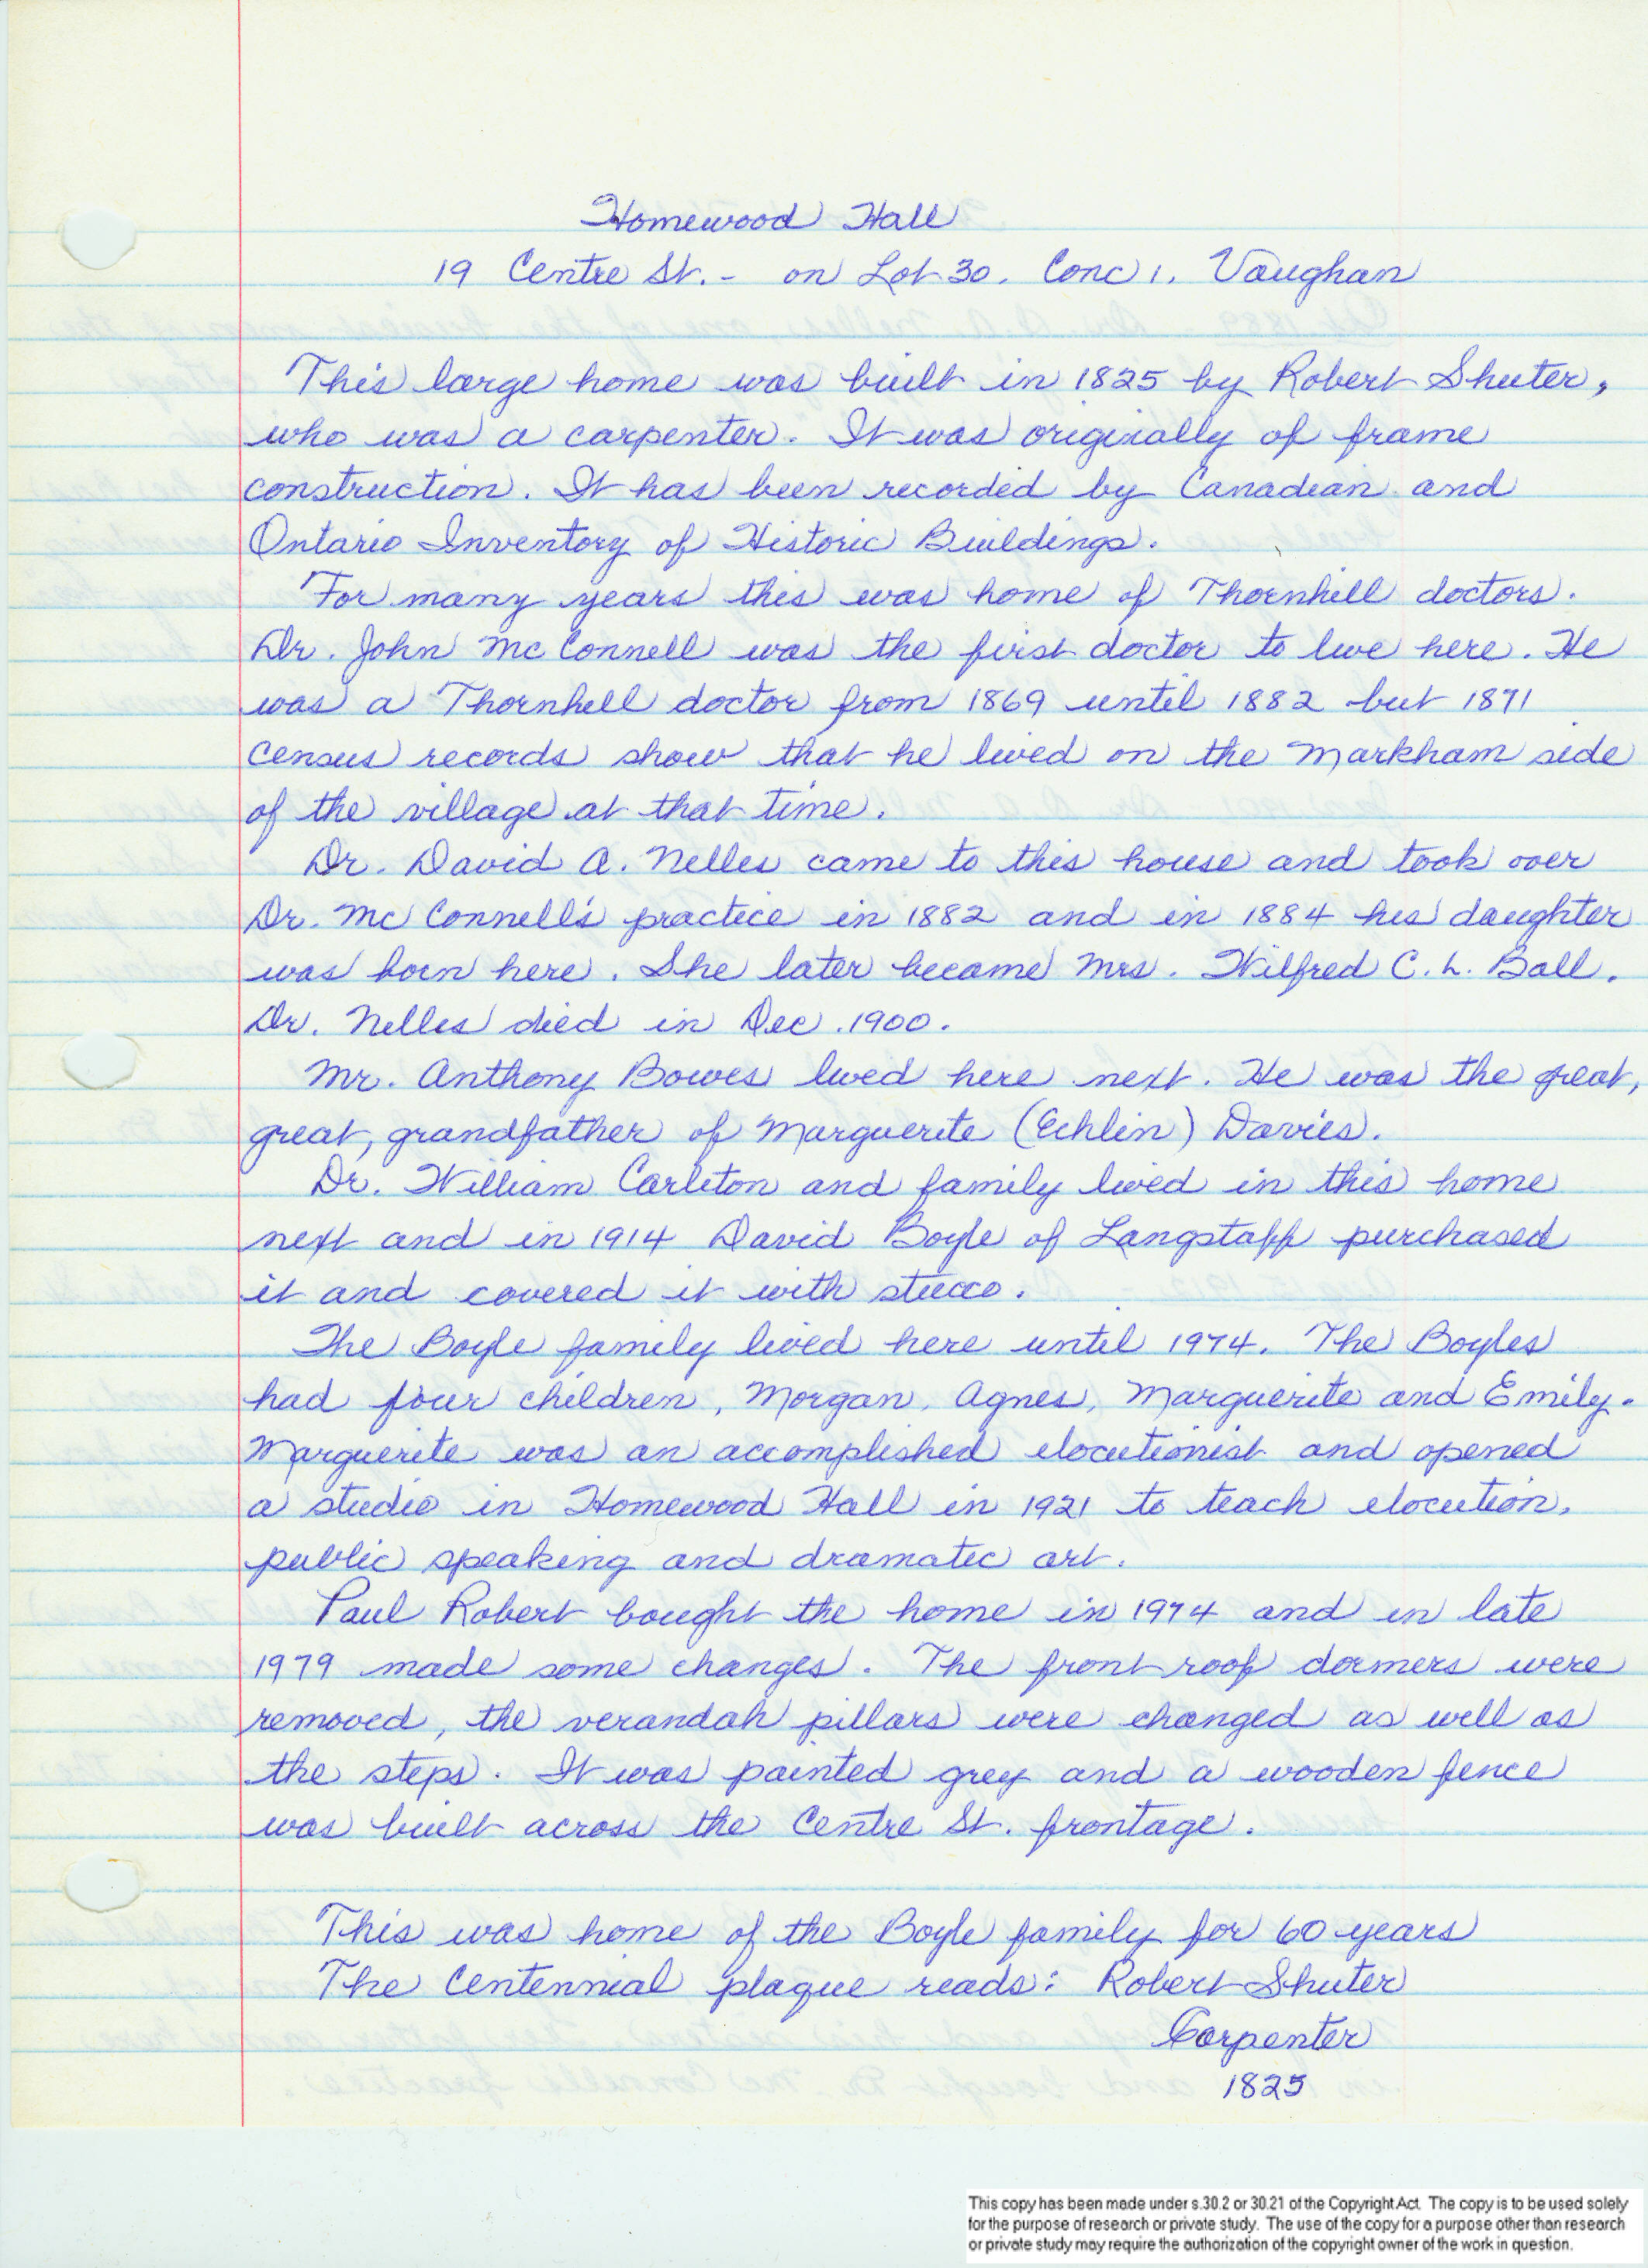 Homewood Hall
19 Centre St. - on Lot 30. Conc 1, Vaughan
This large home was built in 1825 by Robert Shuter,
who was a carpenter. It was originally of frame
construction. It has been recorded by Canadian and
Ontario Inventory of Historic Buildings.
For many years this was home of Thornhill doctors.
Dr. John McConnell was the first doctor to live here. He
was a Thornhill doctor from 1869 until 1882 but 1871
census records show that he lived on the Markham side
of the village at that time.
Dr. David A. Nelles came to this house and took over
Dr. McConnell's practice in 1882 and in 1884 his daughter
was born here. She later became Mrs. Wilfred C. L. Ball.
Dr. Nelles died in Dec. 1900.
Mr. Anthony Bowes lived here next. He was the great,
great, grandfather of Marguerite (Echlin) Davies.
Dr. William Carleton and family lived in this home
next and in 1914 David Boyle of Langstaff purchased
it and covered it with stucco.
The Boyle family lived here until 1974. The Boyles
had four children, Morgan, Agnes, Marguerite and Emily.
Marguerite was an accomplished elocutionist and opened
a studio in Homewood Hall in 1921 to teach elocution,
public speaking and dramatic art.
Paul Robert bought the home in 1974 and in late
1979 made some changes. The front roof dormers were
removed, the verandah pillars were changed as well as
the steps. It was painted grey and a wooden fence
was built across the Centre St. frontage.
This was home of the Boyle family for 60 years
The Centennial plaque reads: Robert Shuter
Carpenter
1825
This copy has been made under s.30.2 or 30.21 of the Copyright Act. The copy is to be used solely
for the purpose of research or private study. The use of the copy for a purpose other than research
or private study may require the authorization of the copyright owner of the work in question.